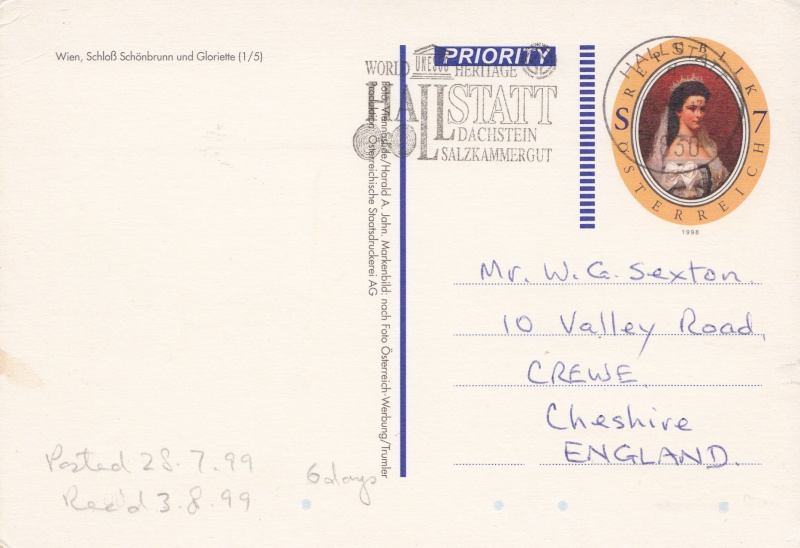 Wien, Schloß Schönbrunn und Gloriette (1/5)
PRIORITY
WORLD UNESCO HERITAGE
HALLSTATT
DACHSTEIN
SALZKAMMERGUT
HALLSTATT
30
REPUBLIK
S 7
ÖSTERREICH
1998
Foto: Viennaslide/Harald A. Jahn. Markenbild: nach Foto Österreich-Werbung/Trumler
Produktion: Österreichische Staatsdruckerei AG
Mr. W. G. Sexton.
10 Valley Road,
CREWE
Cheshire
ENGLAND.
Posted 28.7.99
Rec'd 3.8.99
6 days